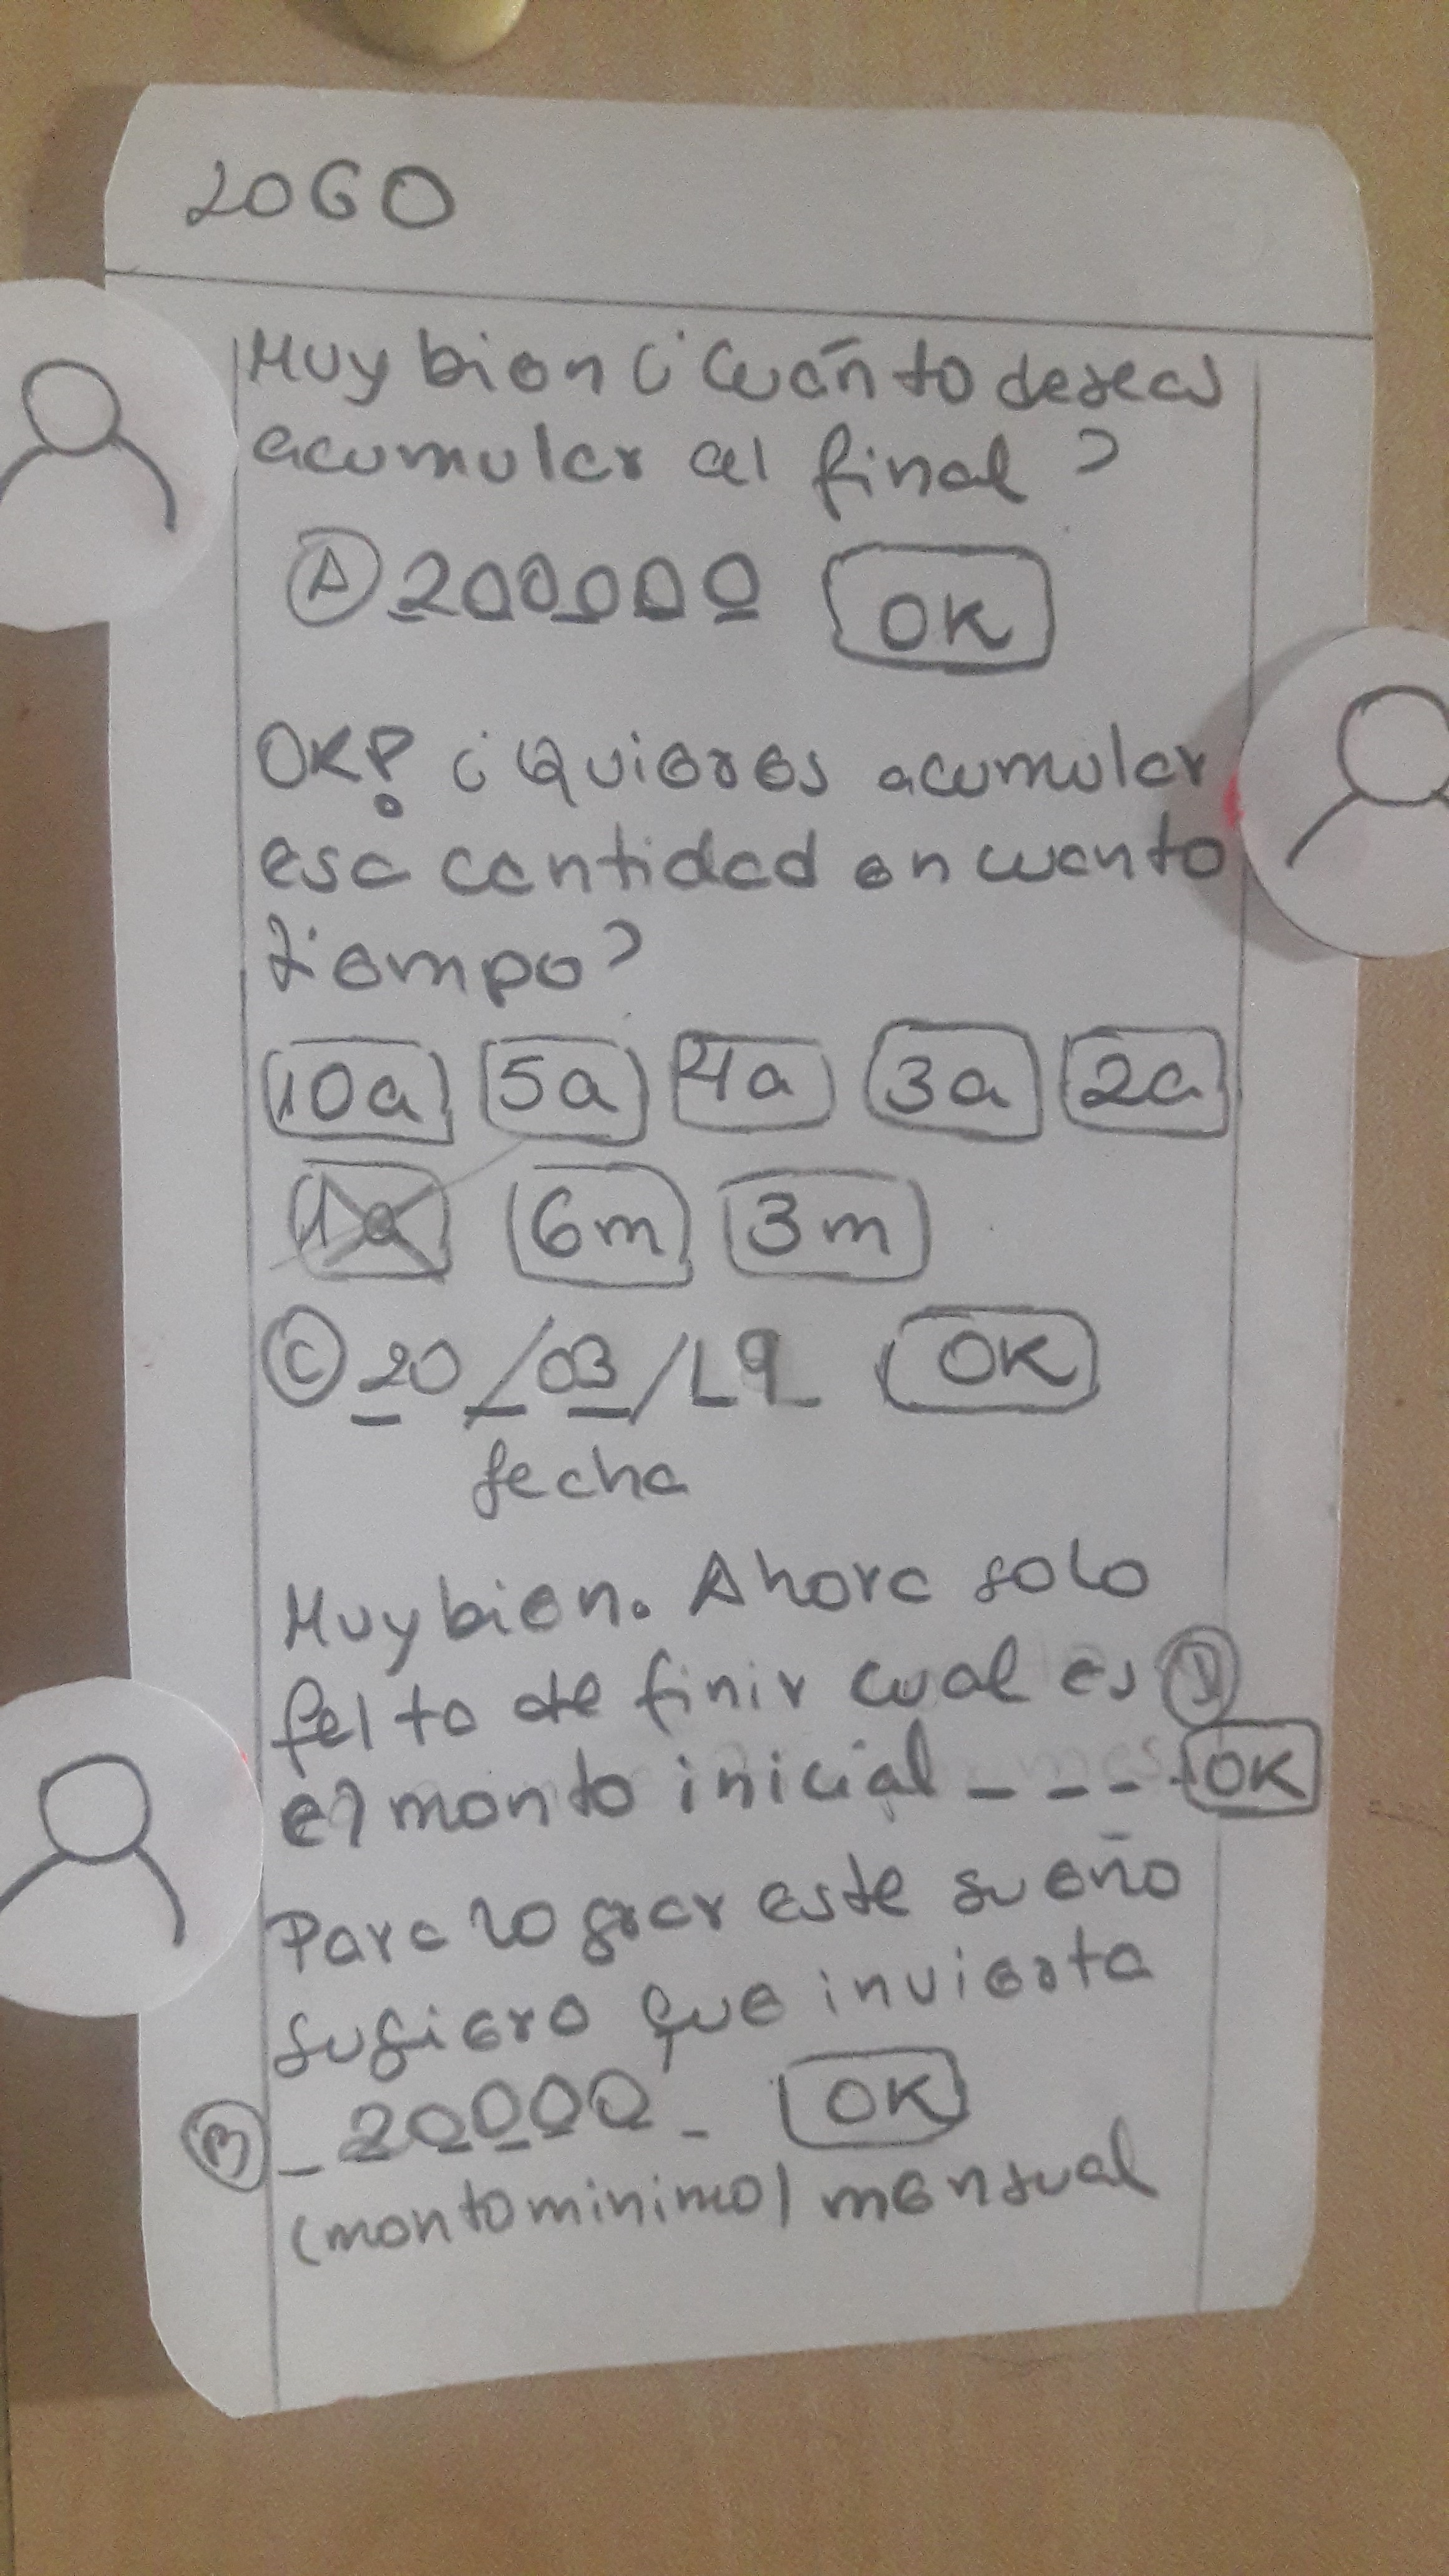 LOGO
Muy bien ¿Cuánto deseas
acumular al final?
A 200000 OK
OK! ¿Quieres acumular
esa cantidad en cuanto
tiempo?
10a 5a 4a 3a 2a
1a 6m 3m
C 20/03/19 OK
fecha
Muy bien. Ahora solo
falta definir cual es D
el monto inicial _ _ _ _ OK
Para lograr este sueño
sugiero que invierta
B _ 20000 _ OK
(monto minimo) mensual